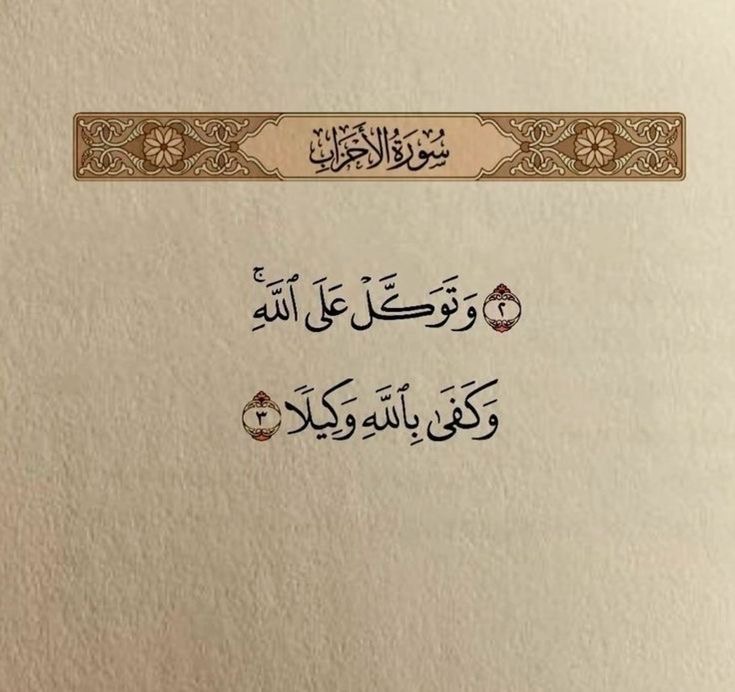 سُورَةُ الأَحْزَابِ
٢ وَتَوَكَّلْ عَلَى ٱللَّهِ ۚ
وَكَفَىٰ بِٱللَّهِ وَكِيلًا ٣